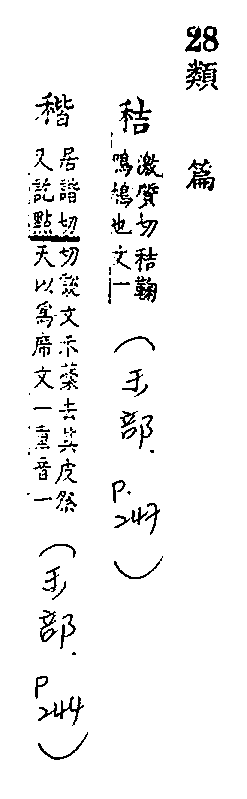 28 類篇
秸
激質切秸鞠
鳴鳩也文一
(禾部. P.247)
稭
居諧切切說文示藁去其皮祭
又訖點天以爲席文一重音一
(禾部. P244)